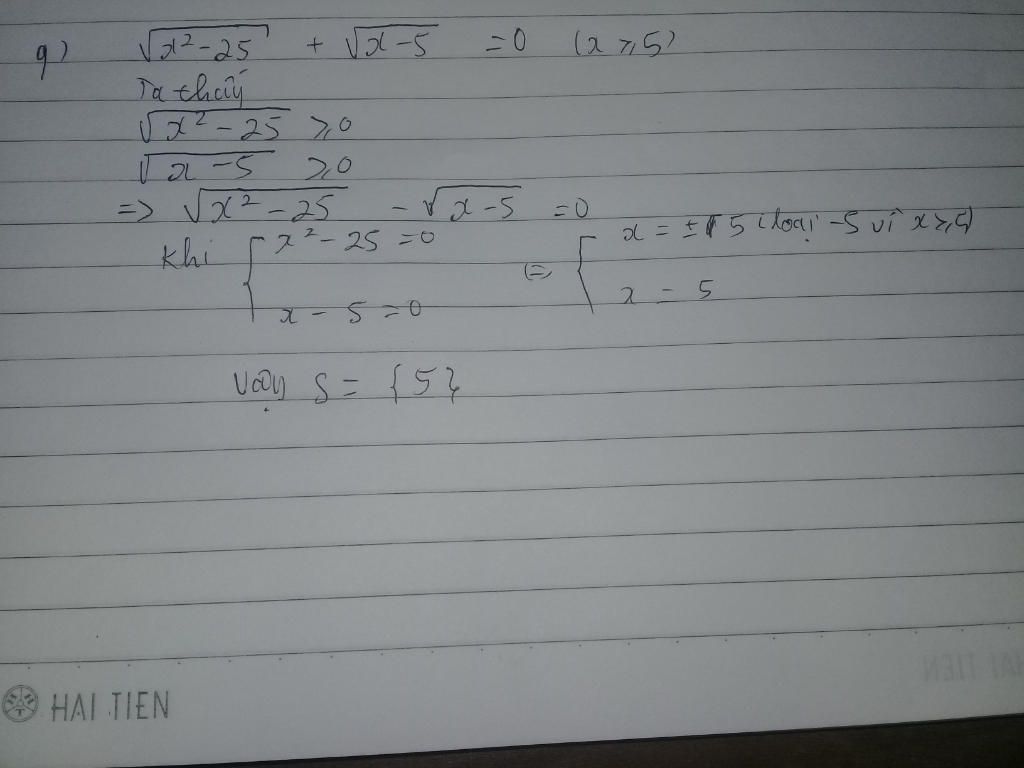 g) √(x²-25) + √(x-5) = 0 (x ≥ 5)
Ta thấy
√(x²-25) ≥ 0
√(x-5) ≥ 0
=> √(x²-25) - √(x-5) = 0
khi { x²-25 = 0 (=) { x = ±5 (loại -5 vì x ≥ 5)
x - 5 = 0 x = 5
Vậy S = {5}
HAI TIEN
HAI TIEN